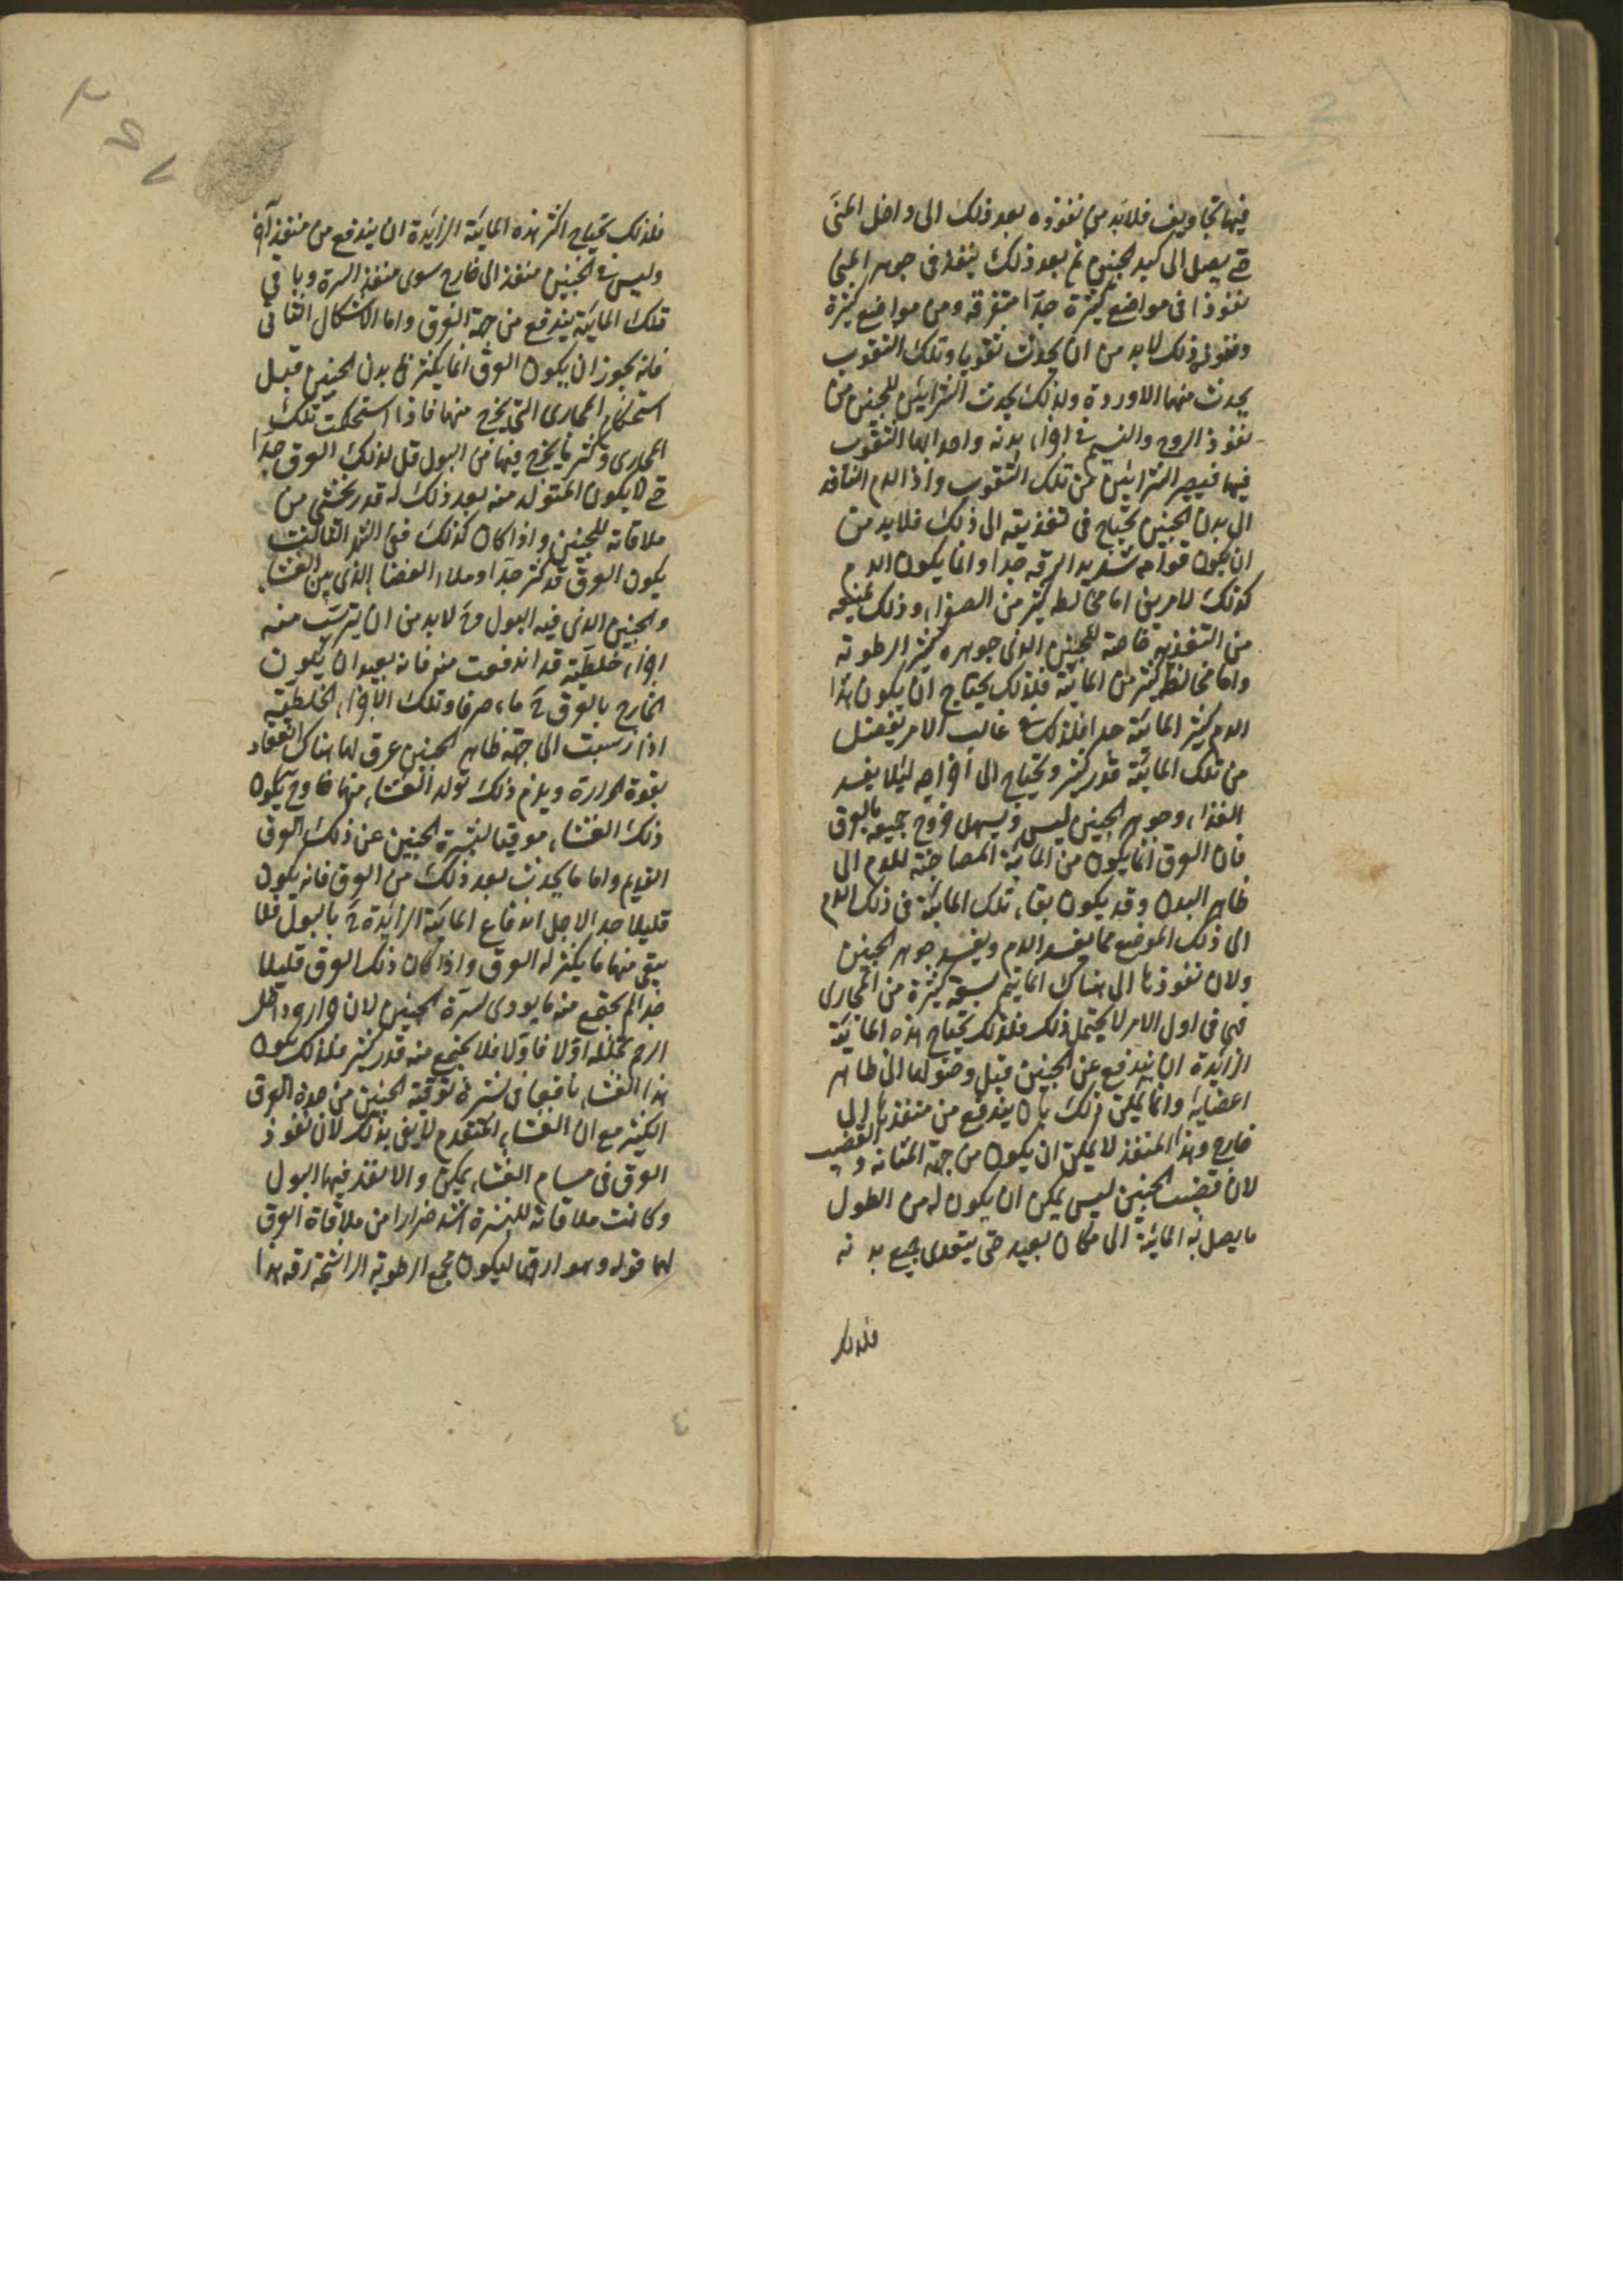 فيها تجاويف فلابد من نفوذه بعد ذلك الى داخل المنى
حتى يصل الى كبد الجنين ثم بعد ذلك ينفذ فى جوهر المنى
نفوذا فى مواضع كثيرة جدا متفرقه ومن مواضع كثيرة
ونفوذ ذلك لا بد من ان يحدث ثقوبا وتلك الثقوب
يحدث منها الاوردة ولذلك يحدث الشرايين للجنين من
نفوذ الروح والنسيم فى اجزاء بدنه واحدابها الثقوب
فيها فيصير الشرايين من تلك الثقوب واذ الدم النافذ
الى بدن الجنين يحتاج فى تغذيته الى ذلك فلابد من
ان يكون قوامه شديد الرقه جدا وانما يكون الدم
كذلك لامرين اما مخالطه كثير من الصفرا وذلك يمنعه
من التغذيه خاصة للجنين الذى جوهره كثير الرطوبه
واما مخالطه كثير من المائية فلذلك يحتاج ان يكون هذا
الدم كثير المائية جدا فلذلك فى غالب الامر يفضل
من تلك المائية قدر كثير ويحتاج الى اخراجه ليلا يفسد
الغذاء وجوهر الجنين ليس يسهل خروج جميعه بالعرق
فان العرق انما يكون من المائية المصاحبة للدم الى
ظاهر البدن وقد يكون بقاء تلك المائية فى ذلك الدم
الى ذلك الموضع مما يفسد الدم ويفسد جوهر الجنين
ولان نفوذها الى هناك انما يتم بسعة كثيرة من المجارى
فهى فى اول الامر لا يحتمل ذلك فلذلك يحتاج هذه المائية
الزائدة ان يندفع عن الجنين قبل وصولها الى ظاهر
اعضائه وانما يمكن ذلك بان يندفع من منفذها الى
خارج وهذا المنفذ لا يمكن ان يكون من جهة المثانه و القضيب
لان قضيب الجنين ليس يمكن ان يكون له من الطول
ما يصل به المائية الى مكان بعيد حتى يتعدى جميع بدنه
فلذلك
فلذلك يحتاج اكثر هذه المائية الزائدة ان يندفع من منفذ آخر
وليس فى الجنين منفذ الى خارج سوى منفذ السرة وباقى
تلك المائية يندفع من جهة العرق واما الاشكال الثانى
فانه يجوز ان يكون العرق انما يكثر فى بدن الجنين قبل
استحكام المجارى التى يخرج منها فاذا استحكمت تلك
المجارى وكثر ما يخرج فيها من البول قل لذلك العرق جدا
حتى لا يكون المتولد منه بعد ذلك له قدر يخشى من
ملاقاته للجنين واذا كان كذلك ففى الشهر الثالث
يكون العرق قد كثر جدا وملاء الفضا الذى بين الغشاء
والجنين الذى فيه البول وح لابد من ان يترسب منه
اجزاء خلطية قد اندفعت منه فانه يبعد ان يكون
الخارج بالعرق ح ماء صرفا وتلك الاجزاء الخلطية
اذا رسبت الى جهة ظاهر الجنين عرق لها هناك انعقاد
بقوة الحرارة ويلزم ذلك تولد الغشاء منها وح يكون
ذلك الغشاء موقيا لبشرة الجنين عن ذلك العرق
القديم واما ما يحدث بعد ذلك من العرق فانه يكون
قليلا جدا لاجل اندفاع المائية الزائدة ح بالبول فلا
يبقى منها ما يكثر له العرق واذا كان ذلك العرق قليلا
جدا لم يجتمع منه ما يودى لسرة الجنين لان حرارة داخل
الرحم تحلله اولا فاولا فلا يجتمع منه قدر كثير فلذلك يكون
هذا الغشاء نافعا فى سترة توقية الجنين من حدة العرق
الكثير مع ان الغشاء المتقدم لا يفى بذلك لان نفوذ
العرق فى مسام الغشاء يمكن والا لنفذ فيها البول
وكانت ملاقاته للبشرة اشد ضرارا من ملاقاة العرق
لها قوله وهو ارقها ليكون مجمع الرطوبة الراشحة رقه هذا